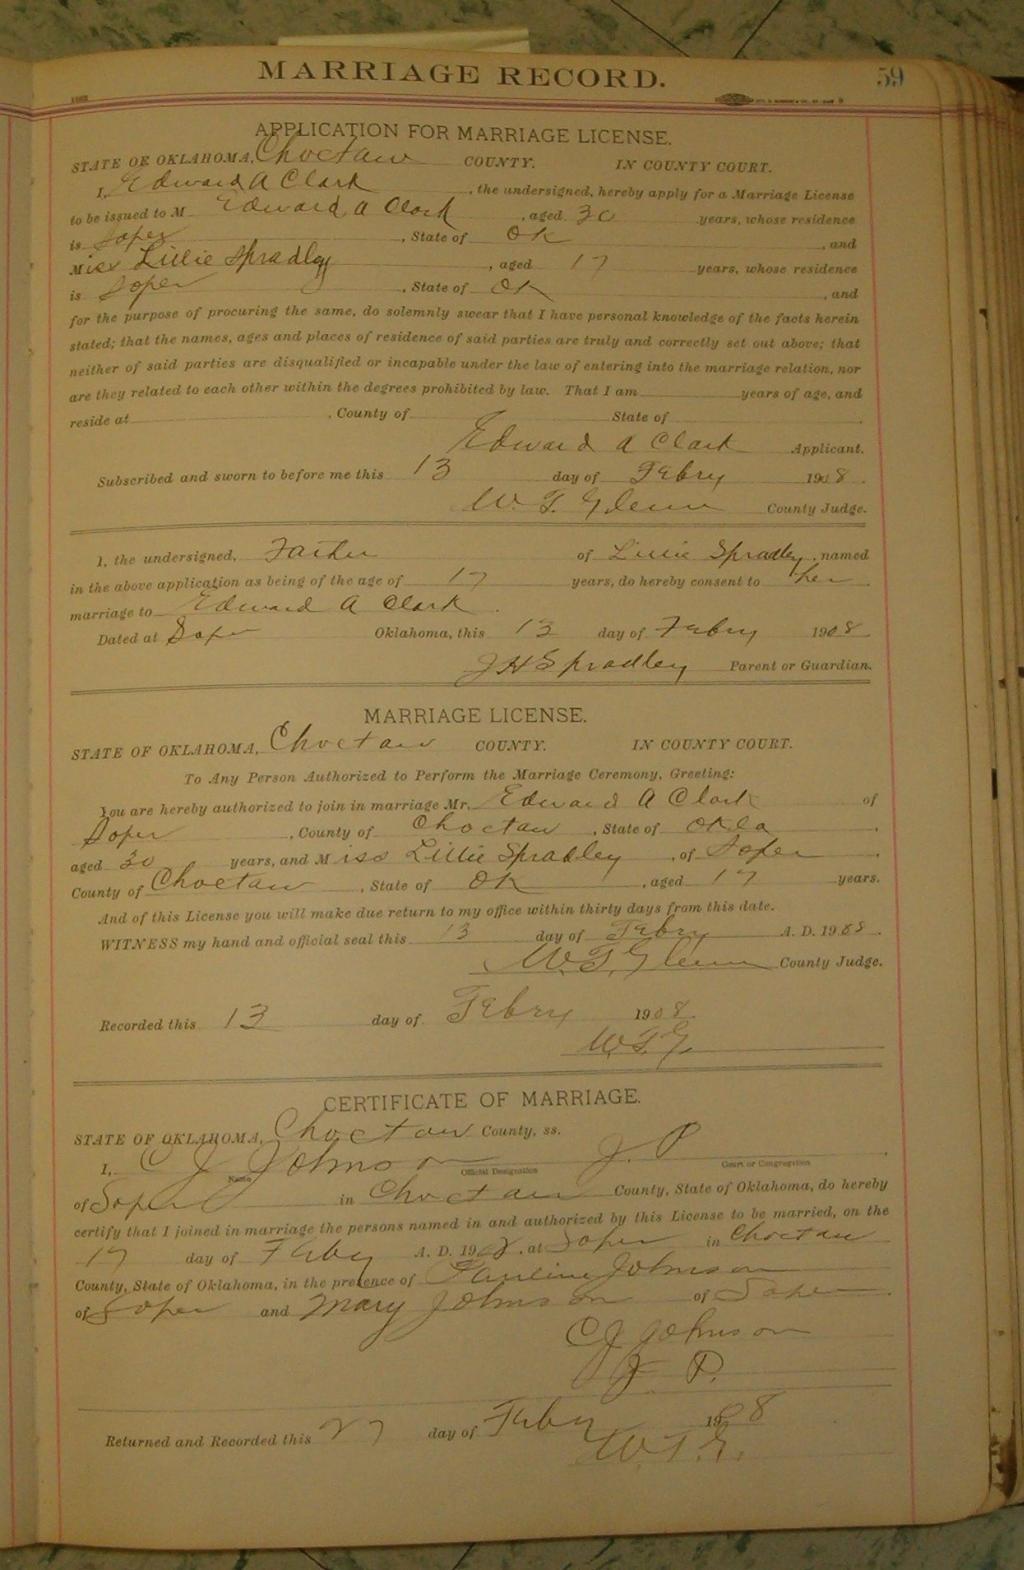 MARRIAGE RECORD. 59
APPLICATION FOR MARRIAGE LICENSE.
STATE OF OKLAHOMA, Choctaw COUNTY. IN COUNTY COURT.
I, Edward A Clark, the undersigned, hereby apply for a Marriage License
to be issued to M Edward A Clark, aged 30 years, whose residence
is Soper, State of Ok, and
Miss Lillie Spradley, aged 17 years, whose residence
is Soper, State of Ok, and
for the purpose of procuring the same, do solemnly swear that I have personal knowledge of the facts herein
stated; that the names, ages and places of residence of said parties are truly and correctly set out above; that
neither of said parties are disqualified or incapable under the law of entering into the marriage relation, nor
are they related to each other within the degrees prohibited by law. That I am years of age, and
reside at , County of State of
Edward A Clark Applicant.
Subscribed and sworn to before me this 13 day of Febry 1908.
W. T. Glenn County Judge.
I, the undersigned, Father of Lillie Spradley, named
in the above application as being of the age of 17 years, do hereby consent to her
marriage to Edward A Clark.
Dated at Soper Oklahoma, this 13 day of Febry 1908
J H Spradley Parent or Guardian.
MARRIAGE LICENSE.
STATE OF OKLAHOMA, Choctaw COUNTY. IN COUNTY COURT.
To Any Person Authorized to Perform the Marriage Ceremony, Greeting:
You are hereby authorized to join in marriage Mr. Edward A Clark of
Soper, County of Choctaw, State of Okla
aged 30 years, and Miss Lillie Spradley, of Soper
County of Choctaw, State of Ok, aged 17 years.
And of this License you will make due return to my office within thirty days from this date.
WITNESS my hand and official seal this 13 day of Febry A. D. 1908.
W. T. Glenn County Judge.
Recorded this 13 day of Febry 1908
W. T. G.
CERTIFICATE OF MARRIAGE.
STATE OF OKLAHOMA, Choctaw County, ss.
I, C J Johnson J. P.
Name Official Designation Court or Congregation
of Soper in Choctaw County, State of Oklahoma, do hereby
certify that I joined in marriage the persons named in and authorized by this License to be married, on the
17 day of Feby A. D. 1908, at Soper in Choctaw
County, State of Oklahoma, in the presence of Pauline Johnson
of Soper and Mary Johnson of Soper.
C J Johnson
J. P.
Returned and Recorded this 27 day of Feby 1908
W. T. G.